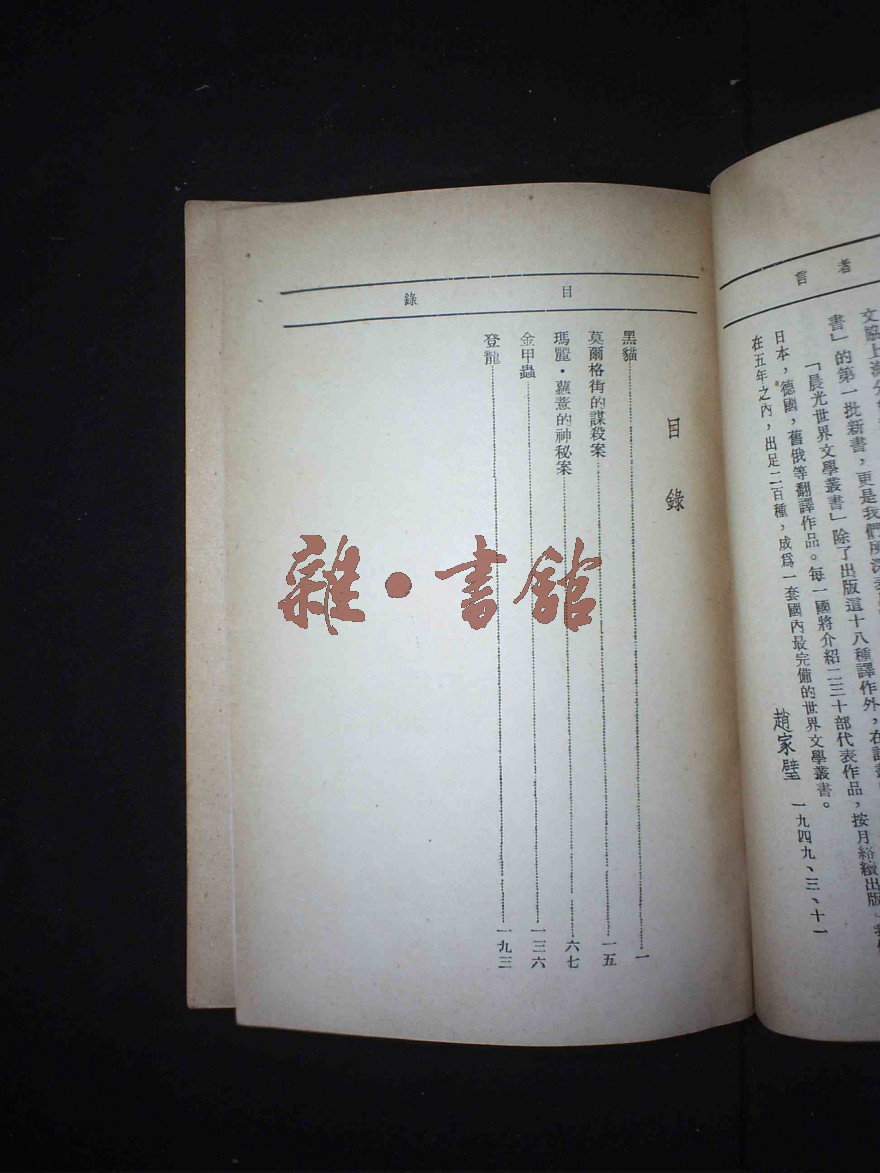 言 者
書」的第一批新書，更是我們
「晨光世界文學叢書」除了出版這十八種譯作外，在
日本，德國，舊俄等翻譯作品。每一國將介紹二三十部代表作品，按月絡續出版。
在五年之內，出足二百種，成爲一套國內最完備的世界文學叢書。
趙家璧 一九四九、三、十一
目 錄
目錄
黑貓 一
莫爾格街的謀殺案 一五
瑪麗·薴薏的神秘案 六七
金甲蟲 一三六
登龍 一九三
雜·書館